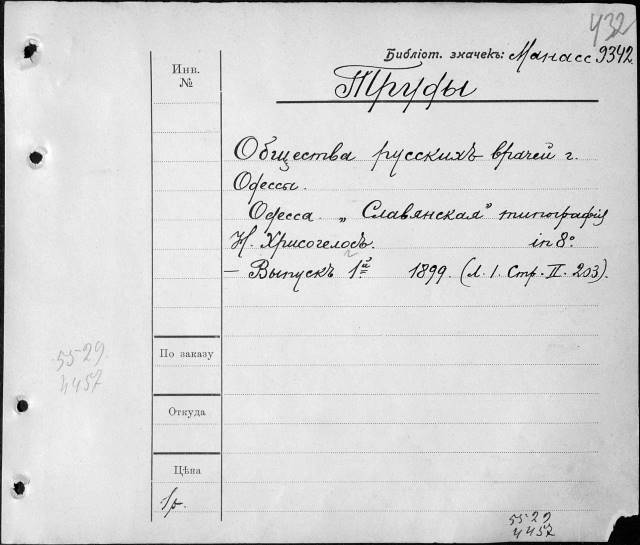 432
Библіот. значекъ: Манасс 9342
Инв.
№
Труды
Общества русскихъ врачей г.
Одессы.
Одесса. „Славянская" типографія
Н. Хрисогелосъ. in 8°
— Выпускъ 1й 1899. (Л. 1. Стр. II. 203).
55-29
4457
По заказу
Откуда
Цѣна
1р.
55-29
4457